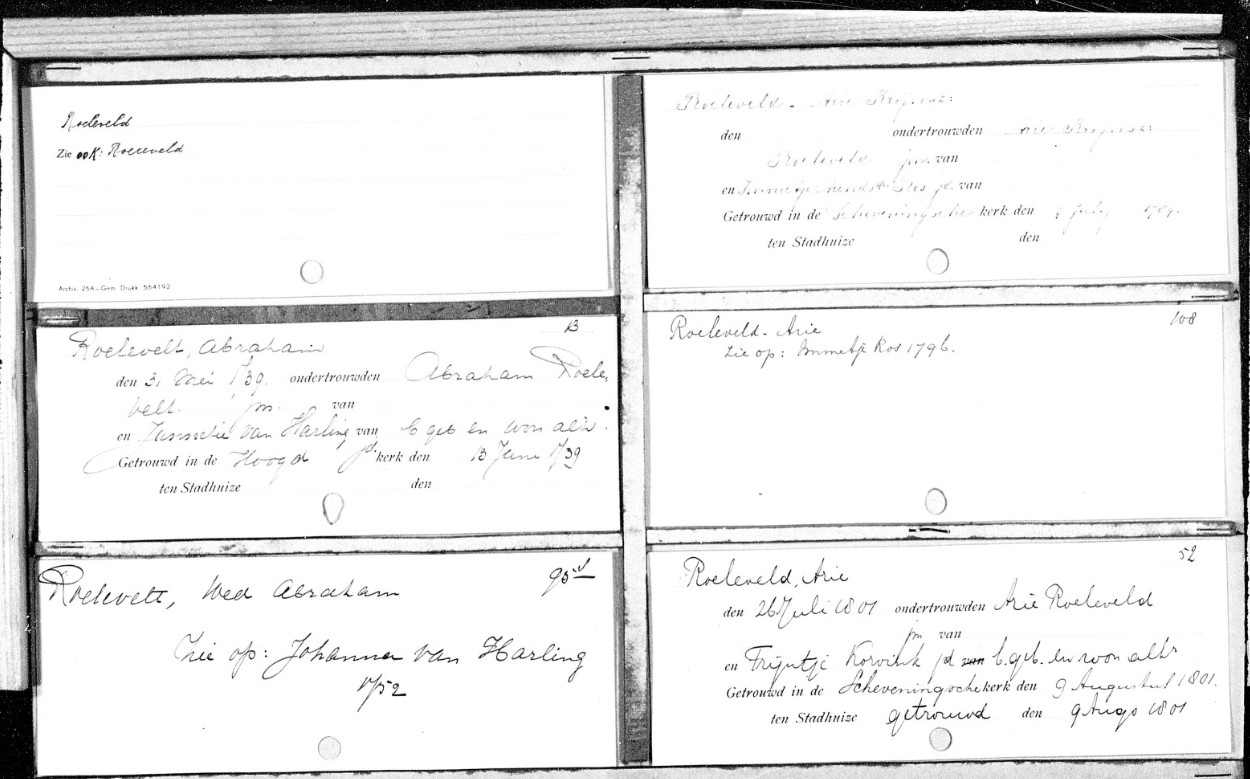 Roeleveld
Zie ook: Roelleveld
Archis. 25A - Gem. Drukk. 564192
13
Roelevelt, Abraham
den 31 Mei 1739. ondertrouwden Abraham Roele,
velt. jm. van
en van Harling van b geb en won alh.
Getrouwd in de Hoogd kerk den 13 Juni 1739
ten Stadhuize den
Roelevelt, Wed Abraham
Zie op: Johanna van Harling
1752
Roeleveld - Arie
den ondertrouwden Arie
Roeleveld jm. van
en jd. van
Getrouwd in de Scheveningsche kerk den July
ten Stadhuize den
108
Roeleveld - Arie
Zie op: Immetje Ros 1796.
52
Roeleveld, Arie
den 26 Juli 1801 ondertrouwden Arie Roeleveld
jm van
en Trijntje Korvink jd van b. geb. en won alhr
Getrouwd in de Scheveningsche kerk den 9 Augustus 1801.
ten Stadhuize getrouwd den 9 Augs 1801